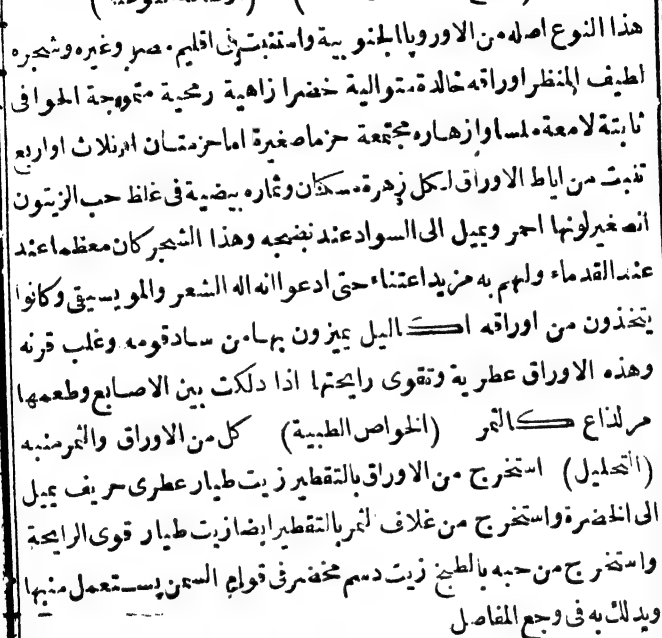 هذا النوع اصله من الاوروپا الجنوبية واستنبت في اقليم مصر وغيره وشجره
لطيف المنظر اوراقه خالدة متوالية خضرا زاهية رمحية متموجة الحوافى
ثابتة لامعة ملسا وازهاره مجتمعة حزما صغيرة اما حزمتان اوثلاث اواربع
تنبت من اباط الاوراق لكل زهرة مسكان وثماره بيضية فى غلظ حب الزيتون
الصغير لونها احمر ويميل الى السواد عند نضجه وهذا الشجر كان معظما عند
عند القدماء ولهم به مزيد اعتناء حتى ادعوا انه اله الشعر والمويسيقى وكانوا
يتخذون من اوراقه اكاليل يميزون بها من ساد قومه وغلب قرنه
وهذه الاوراق عطرية وتقوى رايحتها اذا دلكت بين الاصابع وطعمها
مر لذاع كالثمر (الخواص الطبية) كل من الاوراق والثمر منبه
(التحليل) استخرج من الاوراق بالتقطير زيت طيار عطرى حريف يميل
الى الخضرة واستخرج من غلاف الثمر بالتقطير ايضا زيت طيار قوى الرايحة
واستخرج من حبه بالطبخ زيت دسم مخضر فى قوام السمن يستعمل منبها
ويدلك به فى وجع المفاصل